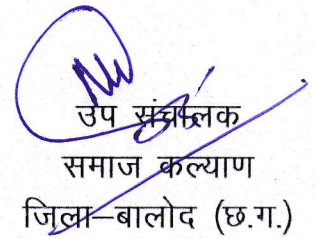 उप संचालक
समाज कल्याण
जिला–बालोद (छ.ग.)